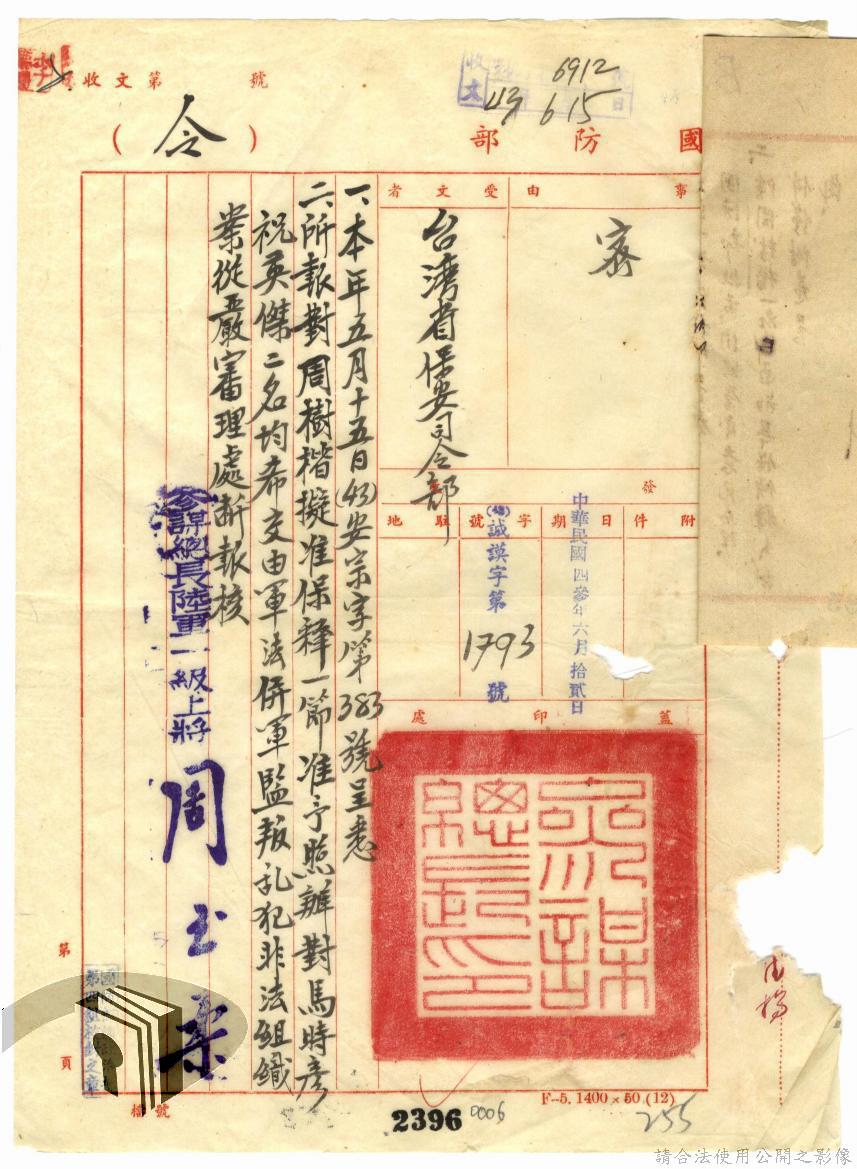 收文第 號
收文
6912
43 6 15
國防部
(令)
事由
密
受文者
台湾省保安司令部
附件
發
日期
中華民國四叁年六月拾貳日
字號
(43)誠謨字第1793號
駐地
蓋印處
參謀總長印
一、本年五月十五日(43)安宗字第383號呈悉
二、所報對周樹楷擬准保釋一節准予照辦對馬時彥
祝英傑二名均希交由軍法併軍監叛乱犯非法組織
業從嚴審理處断報核
參謀總長陸軍一級上將周至柔
第 頁
檔號
2396
0006
F-5. 1400×50.(12)
255
請合法使用公開之影像